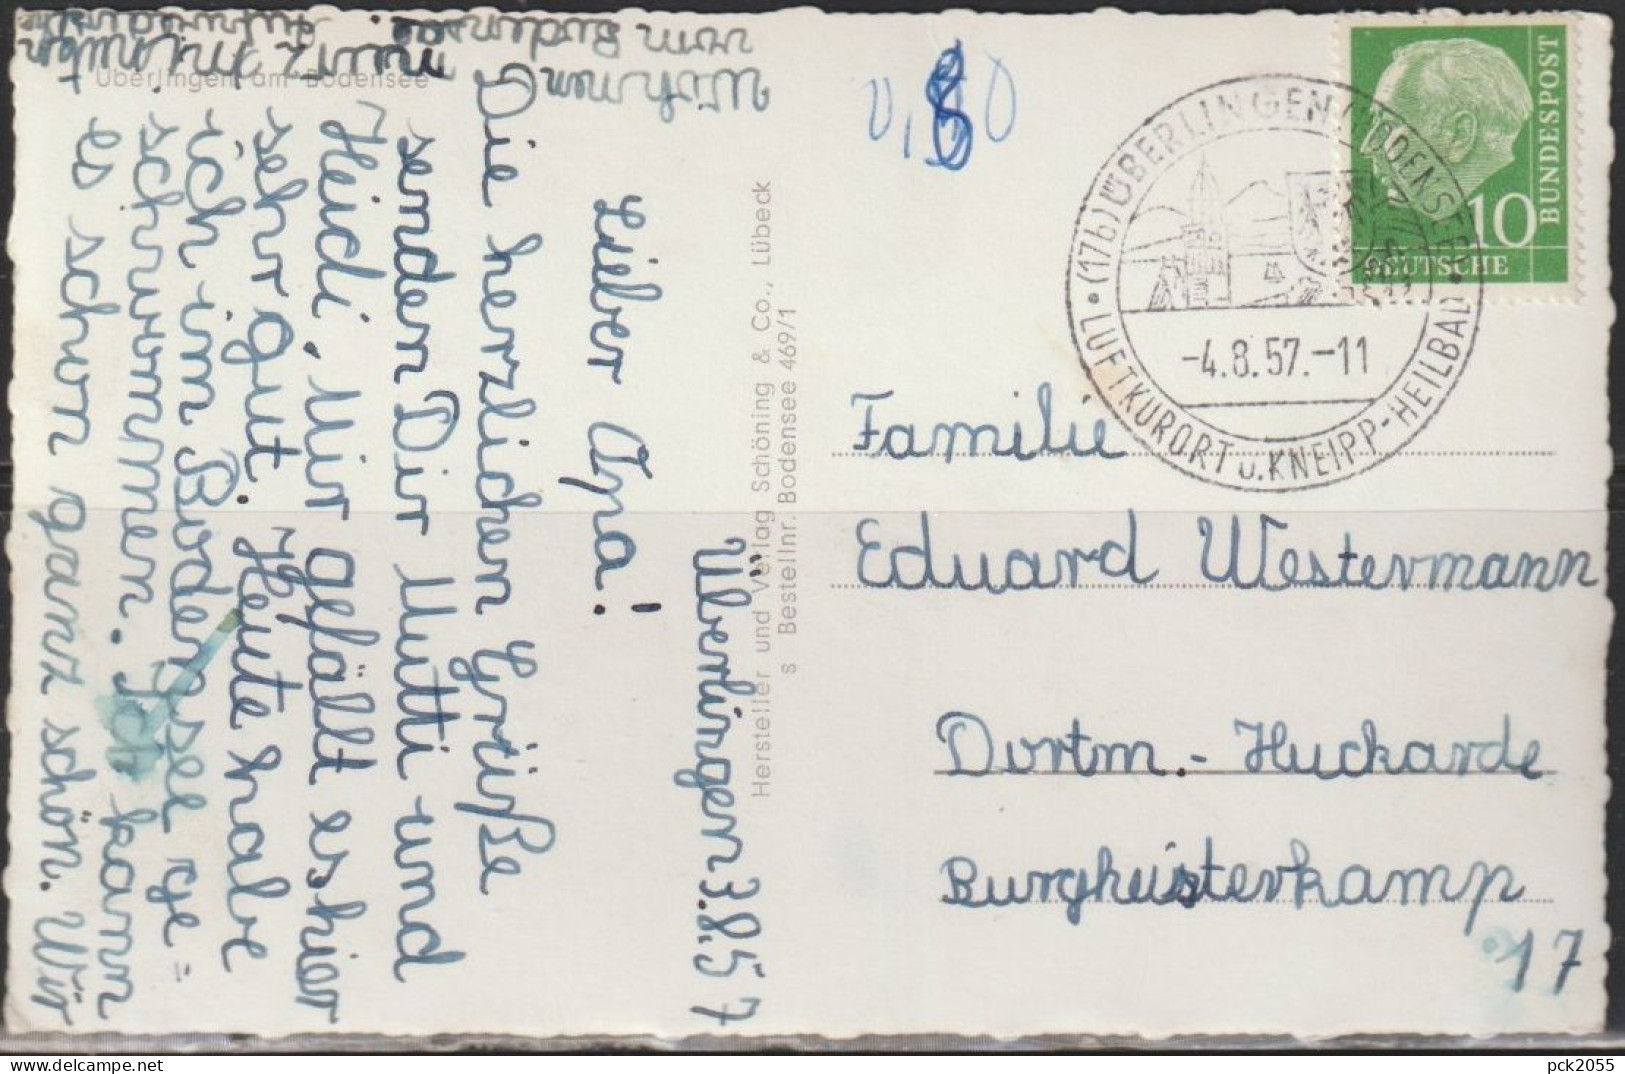 Überlingen am Bodensee
Überlingen 3.8.57
Lieber Opa!
Die herzlichen Grüße
senden Dir Mutti und
Heidi. Mir gefällt es hier
sehr gut. Heute habe
ich im Bodensee ge=
schwommen. Ich kann
es schon ganz schön. Wir
wohnen
vom Bodensee
Hersteller und Verlag Schöning & Co., Lübeck
s Bestellnr. Bodensee 469/1
(17b) ÜBERLINGEN (BODENSEE)
LUFTKURORT u. KNEIPP-HEILBAD
-4.8.57.-11
10
DEUTSCHE
BUNDESPOST
Familie
Eduard Westermann
Dortm.-Huckarde
17
pck2055